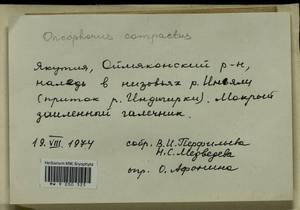 Oncophorus compactus
Якутия, Оймяконский р-н,
наледь в низовьях р. Иньяли
(приток р. Индигирки). Мокрый
заиленный галечник.
19.VIII.1974 собр. В.И. Перфильева
Н.С. Медведева
Herbarium MW, Bryophyta
опр. О. Афонина